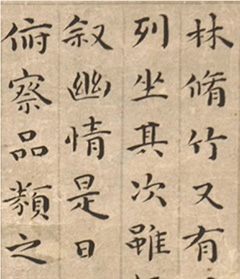 林脩竹又有
列坐其次雖
叙幽情是日
俯察品類之